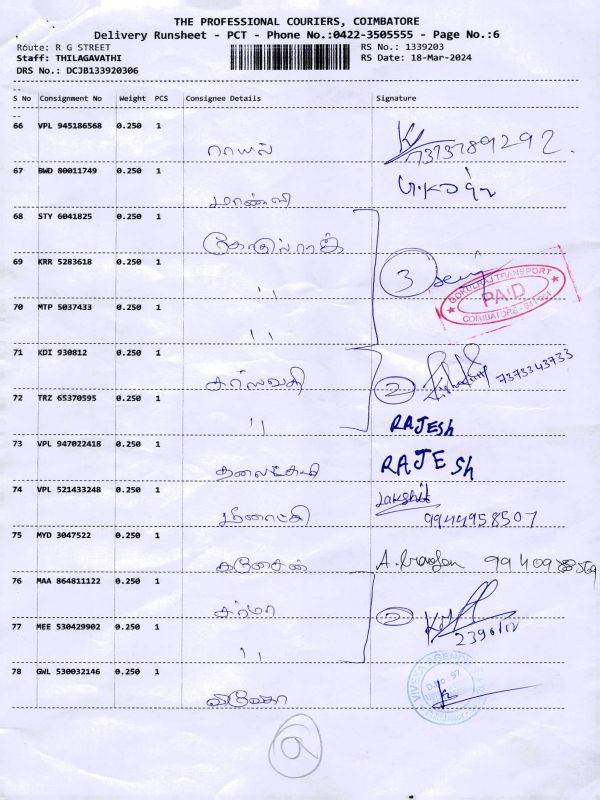 THE PROFESSIONAL COURIERS, COIMBATORE
Delivery Runsheet - PCT - Phone No.:0422-3505555 - Page No.:6
Route: R G STREET
RS No.: 1339203
Staff: THILAGAVATHI
RS Date: 18-Mar-2024
DRS No.: DCJB133920306
S No Consignment No Weight PCS Consignee Details Signature
66 VPL 945186568 0.250 1 ராயல் 7373789292
67 BWD 80011749 0.250 1
68 STY 6041825 0.250 1 கோகுல்ராஜ்
69 KRR 5283618 0.250 1 " 3
GOKULRAJ TRANSPORT
PAID
COIMBATORE - 641 001
70 MTP 5037433 0.250 1 "
71 KDI 930812 0.250 1 சரஸ்வதி 2 7373343733
72 TRZ 65370595 0.250 1 " RAJESh
73 VPL 947022418 0.250 1 RAJESh
74 VPL 521433248 0.250 1 மீனாட்சி Lakshit
9944958507
75 MYD 3047522 0.250 1 கணேசன்
76 MAA 864811122 0.250 1 சர்மா 2
77 MEE 530429902 0.250 1 "
78 GWL 530032146 0.250 1 விவேகா
VIVEKA AGENCY